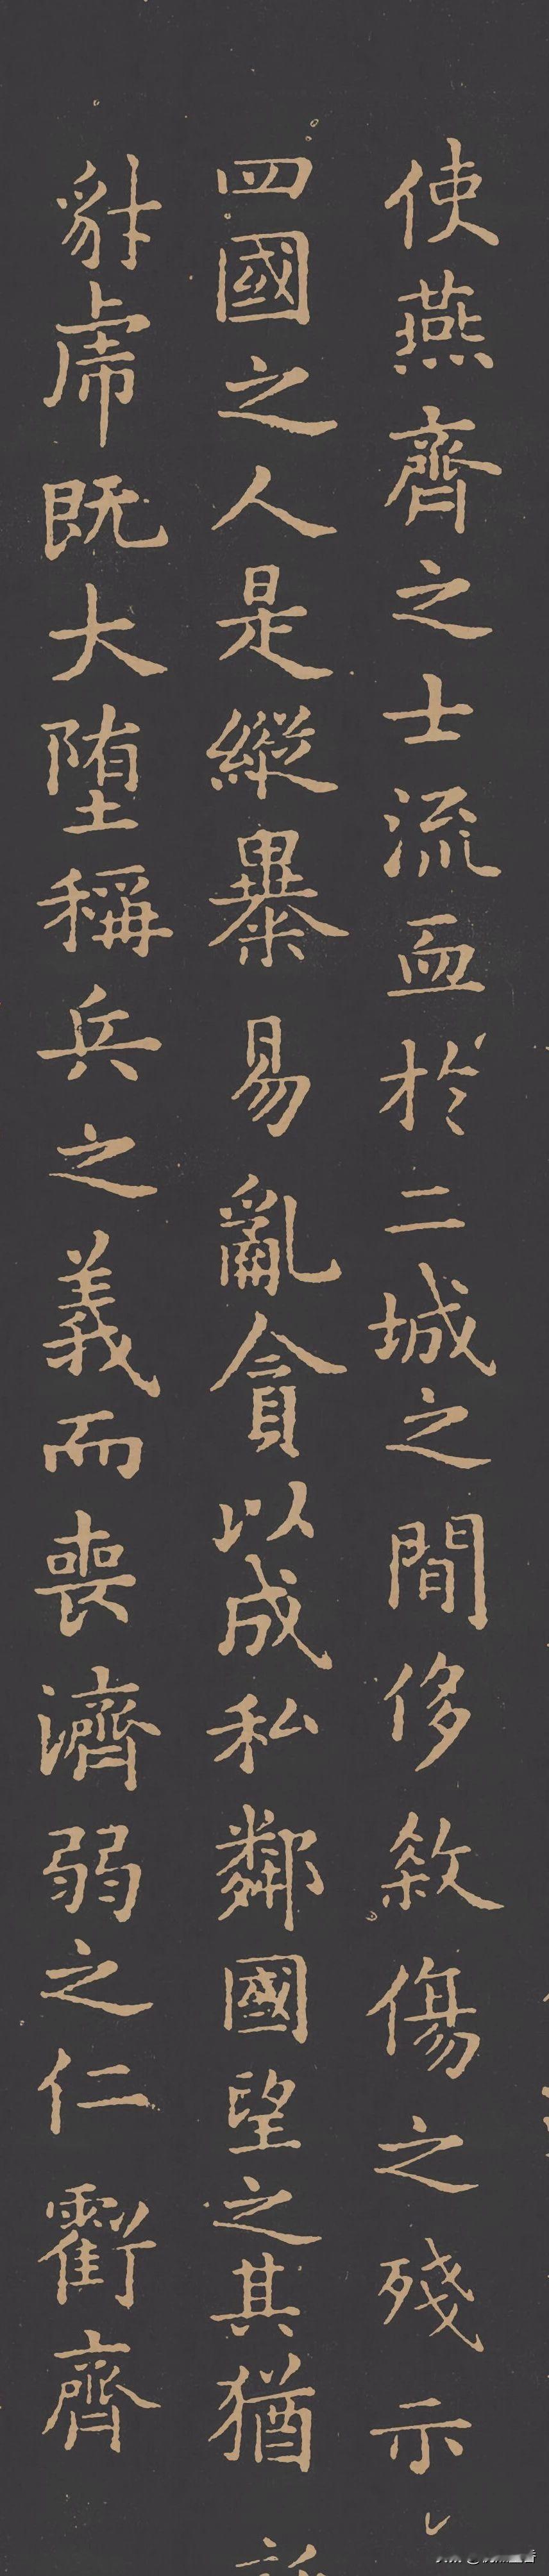 使燕齊之士流血於二城之閒侈殺傷之殘示
四國之人是縱暴易亂貪以成私鄰國望之其猶
豺虎既大堕稱兵之義而喪濟弱之仁虧齊